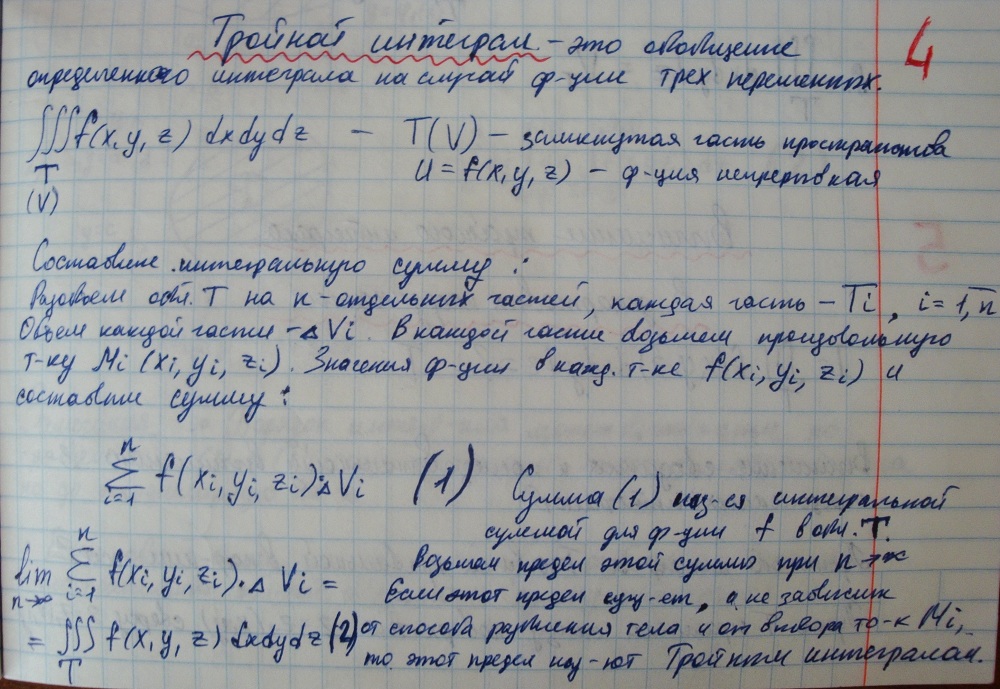 Тройной интеграл - это обобщение
4
определенного интеграла на случай ф-ции трех переменных.
∭f(x,y,z) dxdydz - T(V) - замкнутая часть пространства
T
(V)
U = f(x,y,z) - ф-ция непрерывная
Составим интегральную сумму:
Разобьем обл. T на n-отдельных частей, каждая часть - Ti, i=1,n
Объем каждой части - ΔVi. В каждой части возьмем произвольную
т-ку Mi (xi, yi, zi). Значения ф-ции в кажд. т-ке f(xi, yi, zi) и
составим сумму:
n
∑ f(xi, yi, zi)·ΔVi (1)
i=1
Сумма (1) наз-ся интегральной
суммой для ф-ции f в обл. T.
Возьмем предел этой суммы при n→∞
Если этот предел сущ-ет, а не зависит
от способа разбиения тела и от выбора то-к Mi,
то этот предел наз-ют Тройным интегралом.
n
lim ∑ f(xi, yi, zi)·ΔVi =
n→∞ i=1
= ∭ f(x,y,z) dxdydz (2)
T